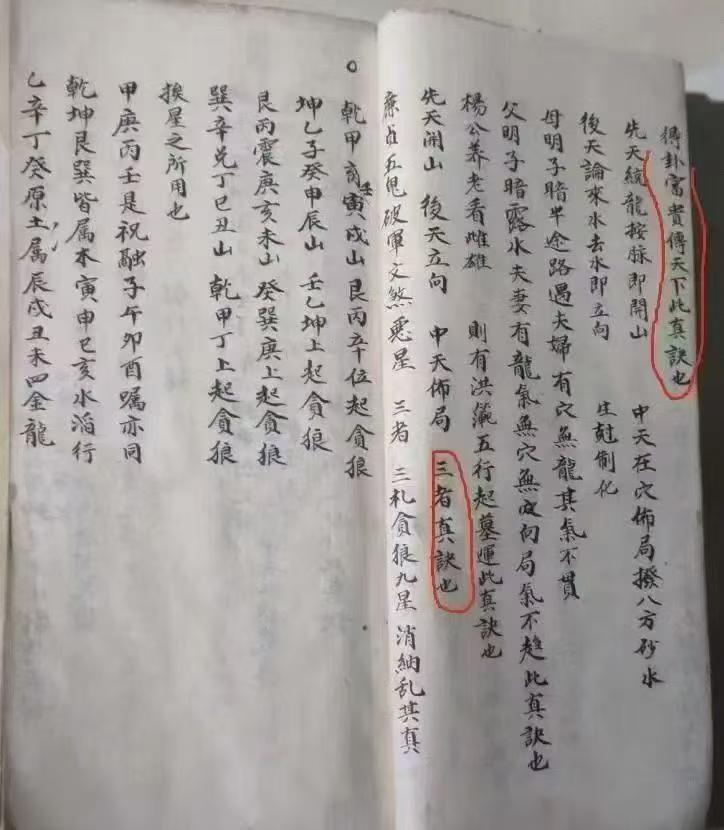 得卦富貴傳天下此真訣也
先天統龍按脉即開山　中天在穴佈局撥八方砂水
後天論來水去水即立向　生尅制化
母明子暗半途路過夫婦有穴無龍其氣不貫
父明子暗露水夫妻有龍氣無穴無向局氣不趨此真訣也
楊公養老看雌雄　則有洪範五行起墓運此真訣也
先天開山　後天立向　中天佈局　三者真訣也
廉貞五鬼破軍文煞惡星　三者　三札貪狼九星消納乱其真
乾甲亥壬寅戌山艮丙辛位起貪狼
坤乙子癸申辰山　壬乙坤上起貪狼
艮丙震庚亥未山癸巽庚上起貪狼
巽辛兑丁巳丑山　乾甲丁上起貪狼
挨星之所用也
甲庚丙壬是祝融子午卯酉嘱亦同
乾坤艮巽皆属木寅申巳亥水滔行
乙辛丁癸原土属辰戌丑未四金龍